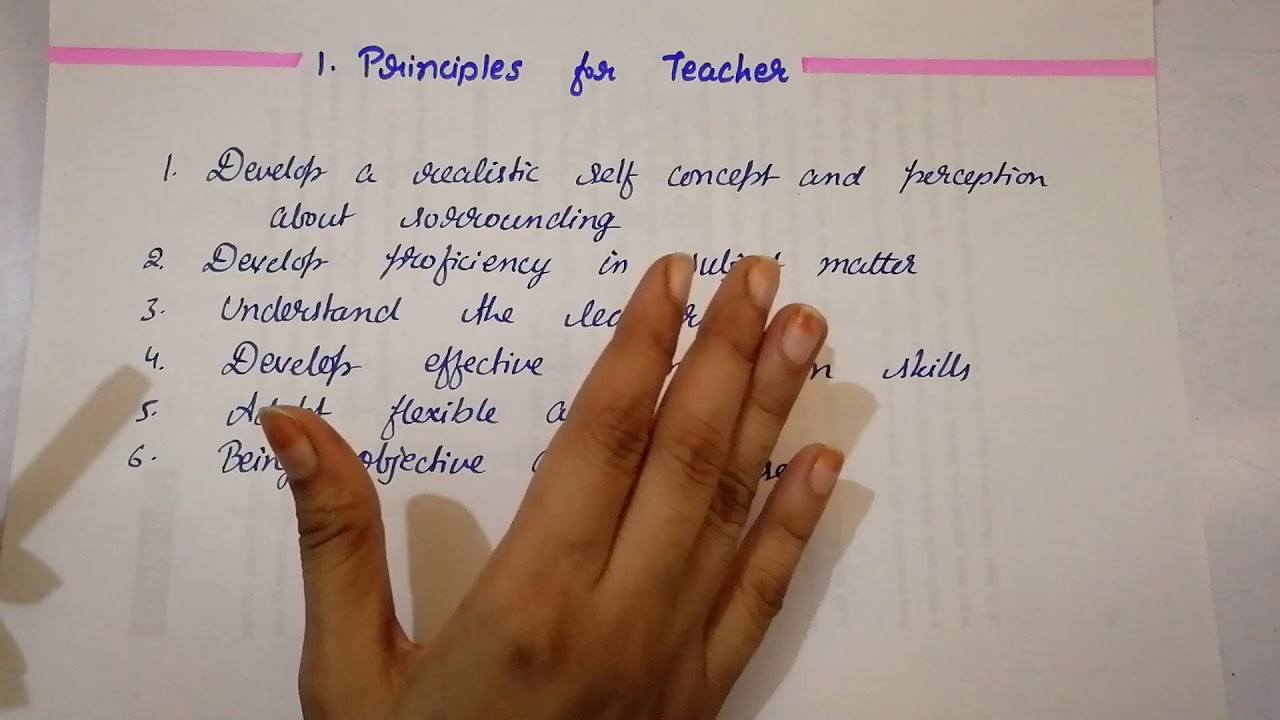 1. Principles for Teacher
1. Develop a realistic self concept and perception
about sorrounding
2. Develop proficiency in matter
3. Understand the
4. Develop effective skills
5. flexible
6. Being objective